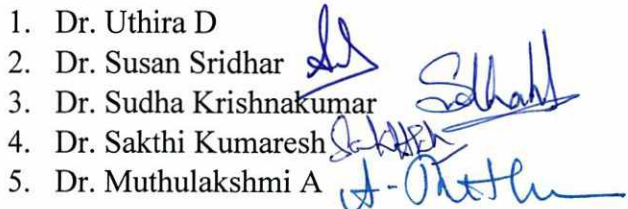 1. Dr. Uthira D
2. Dr. Susan Sridhar
3. Dr. Sudha Krishnakumar
4. Dr. Sakthi Kumaresh
5. Dr. Muthulakshmi A